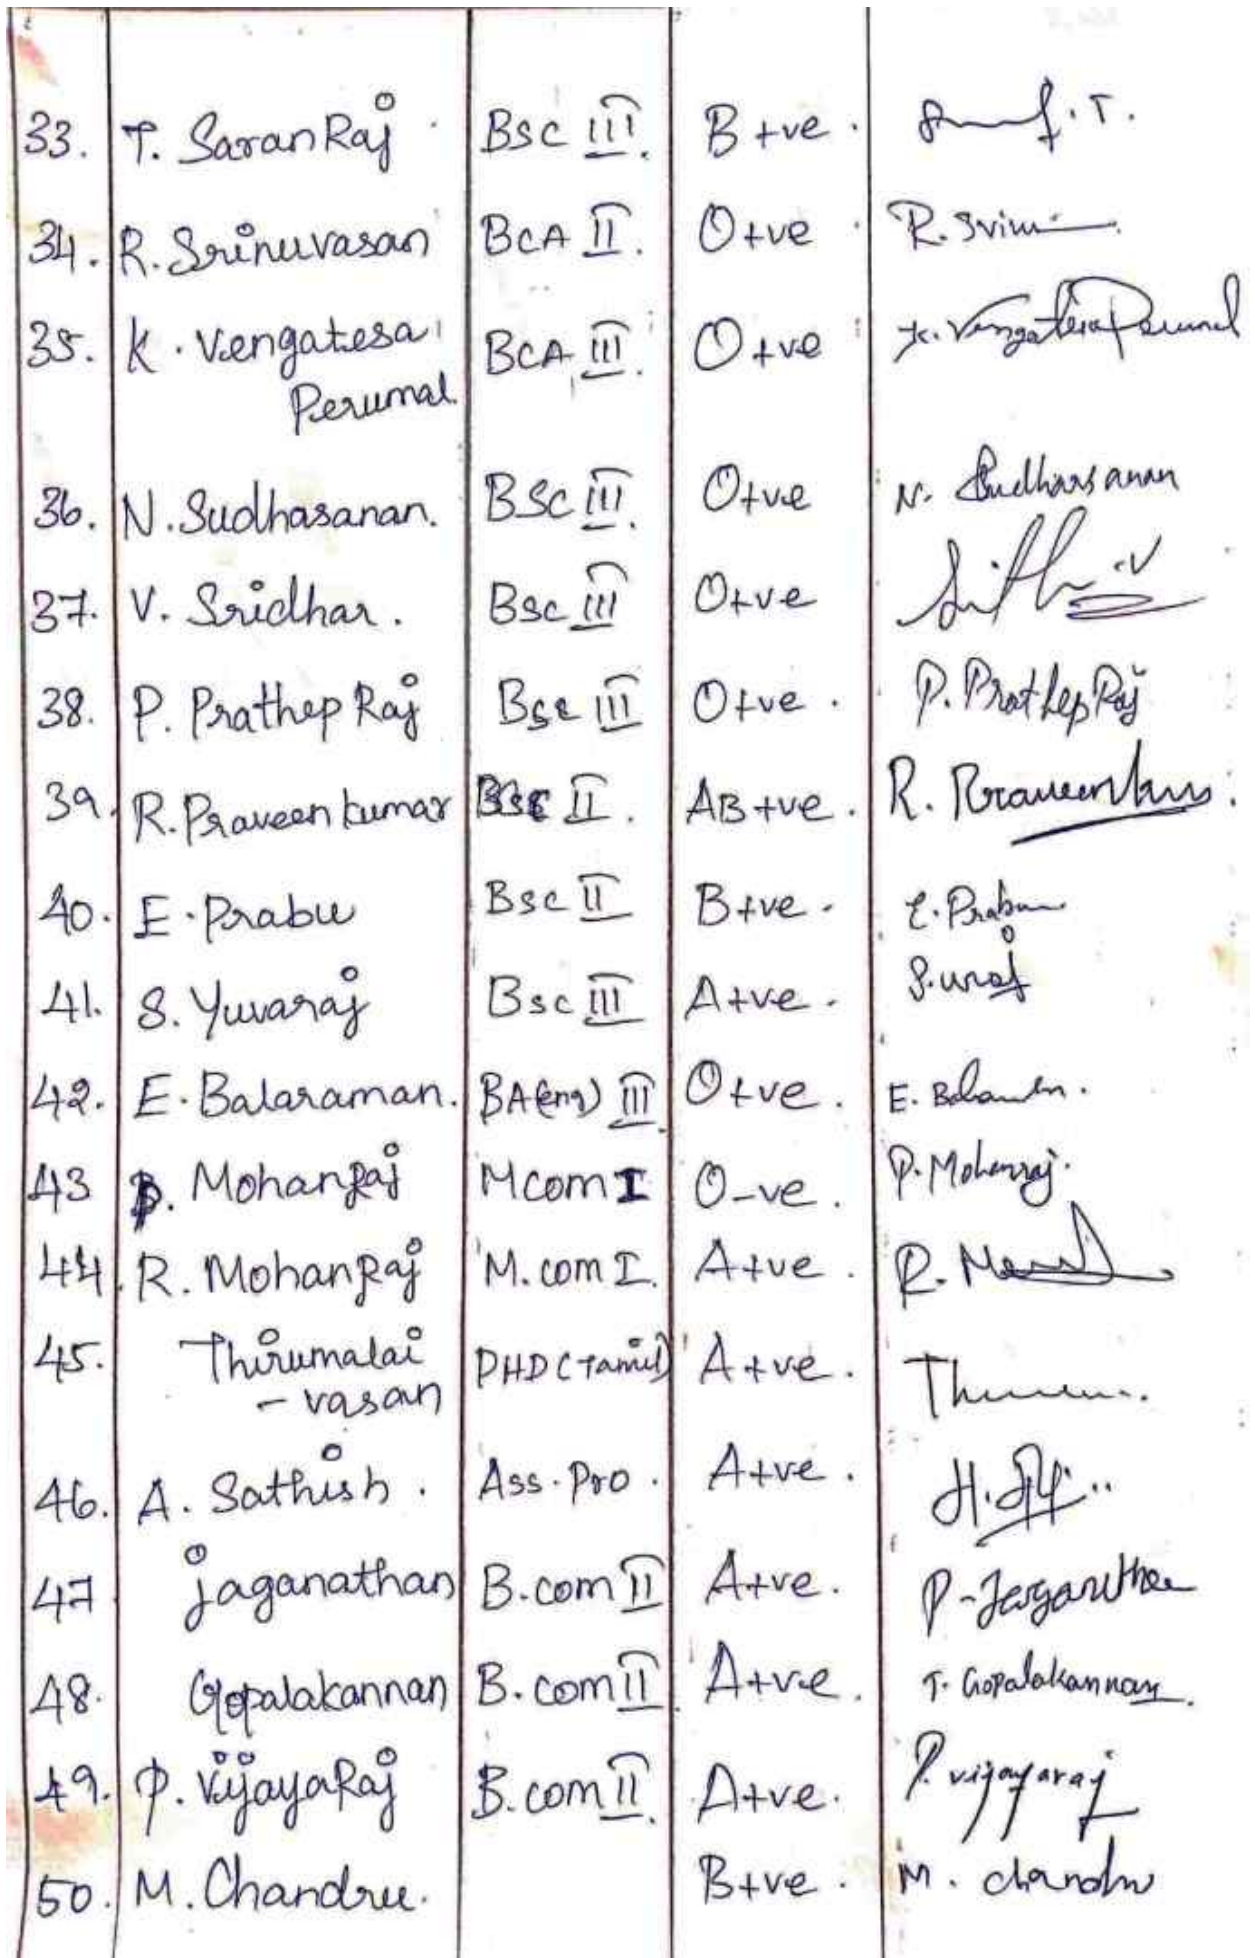 33. T. SaranRaj BSc III. B +ve. T.
34. R. Srinuvasan BCA II. O+ve R. Srini
35. K. Vengatesa BCA III. O+ve K. Vengatesa Perumal
Perumal.
36. N. Sudhasanan. BSC III. O+ve N. Sudharsanan
37. V. Sridhar. Bsc III O+ve
38. P. Prathep Raj Bsc III O+ve. P. Prathep Raj
39. R. Praveen kumar BSc II. AB +ve. R. Praveenkum
40. E. Prabu Bsc II B+ve. E. Prabu
41. S. Yuvaraj Bsc III A+ve. S.uraj
42. E. Balaraman. BA(eng) III O+ve. E.
43 P. MohanRaj Mcom I O-ve. P. Mohanraj.
44. R. MohanRaj M.com I. A+ve. R.
45. Thirumalai PHD (Tamil) A+ve.
- vasan
46. A. Sathish. Ass. pro. A+ve.
47 Jaganathan B.com II A+ve. P-Jaganathan
48. Gopalakannan B.com II A+ve. T. Gopalakannan.
49. P. VijayaRaj B.com II A+ve. P. vijayaraj
50. M. Chandru. B+ve. M. chandru